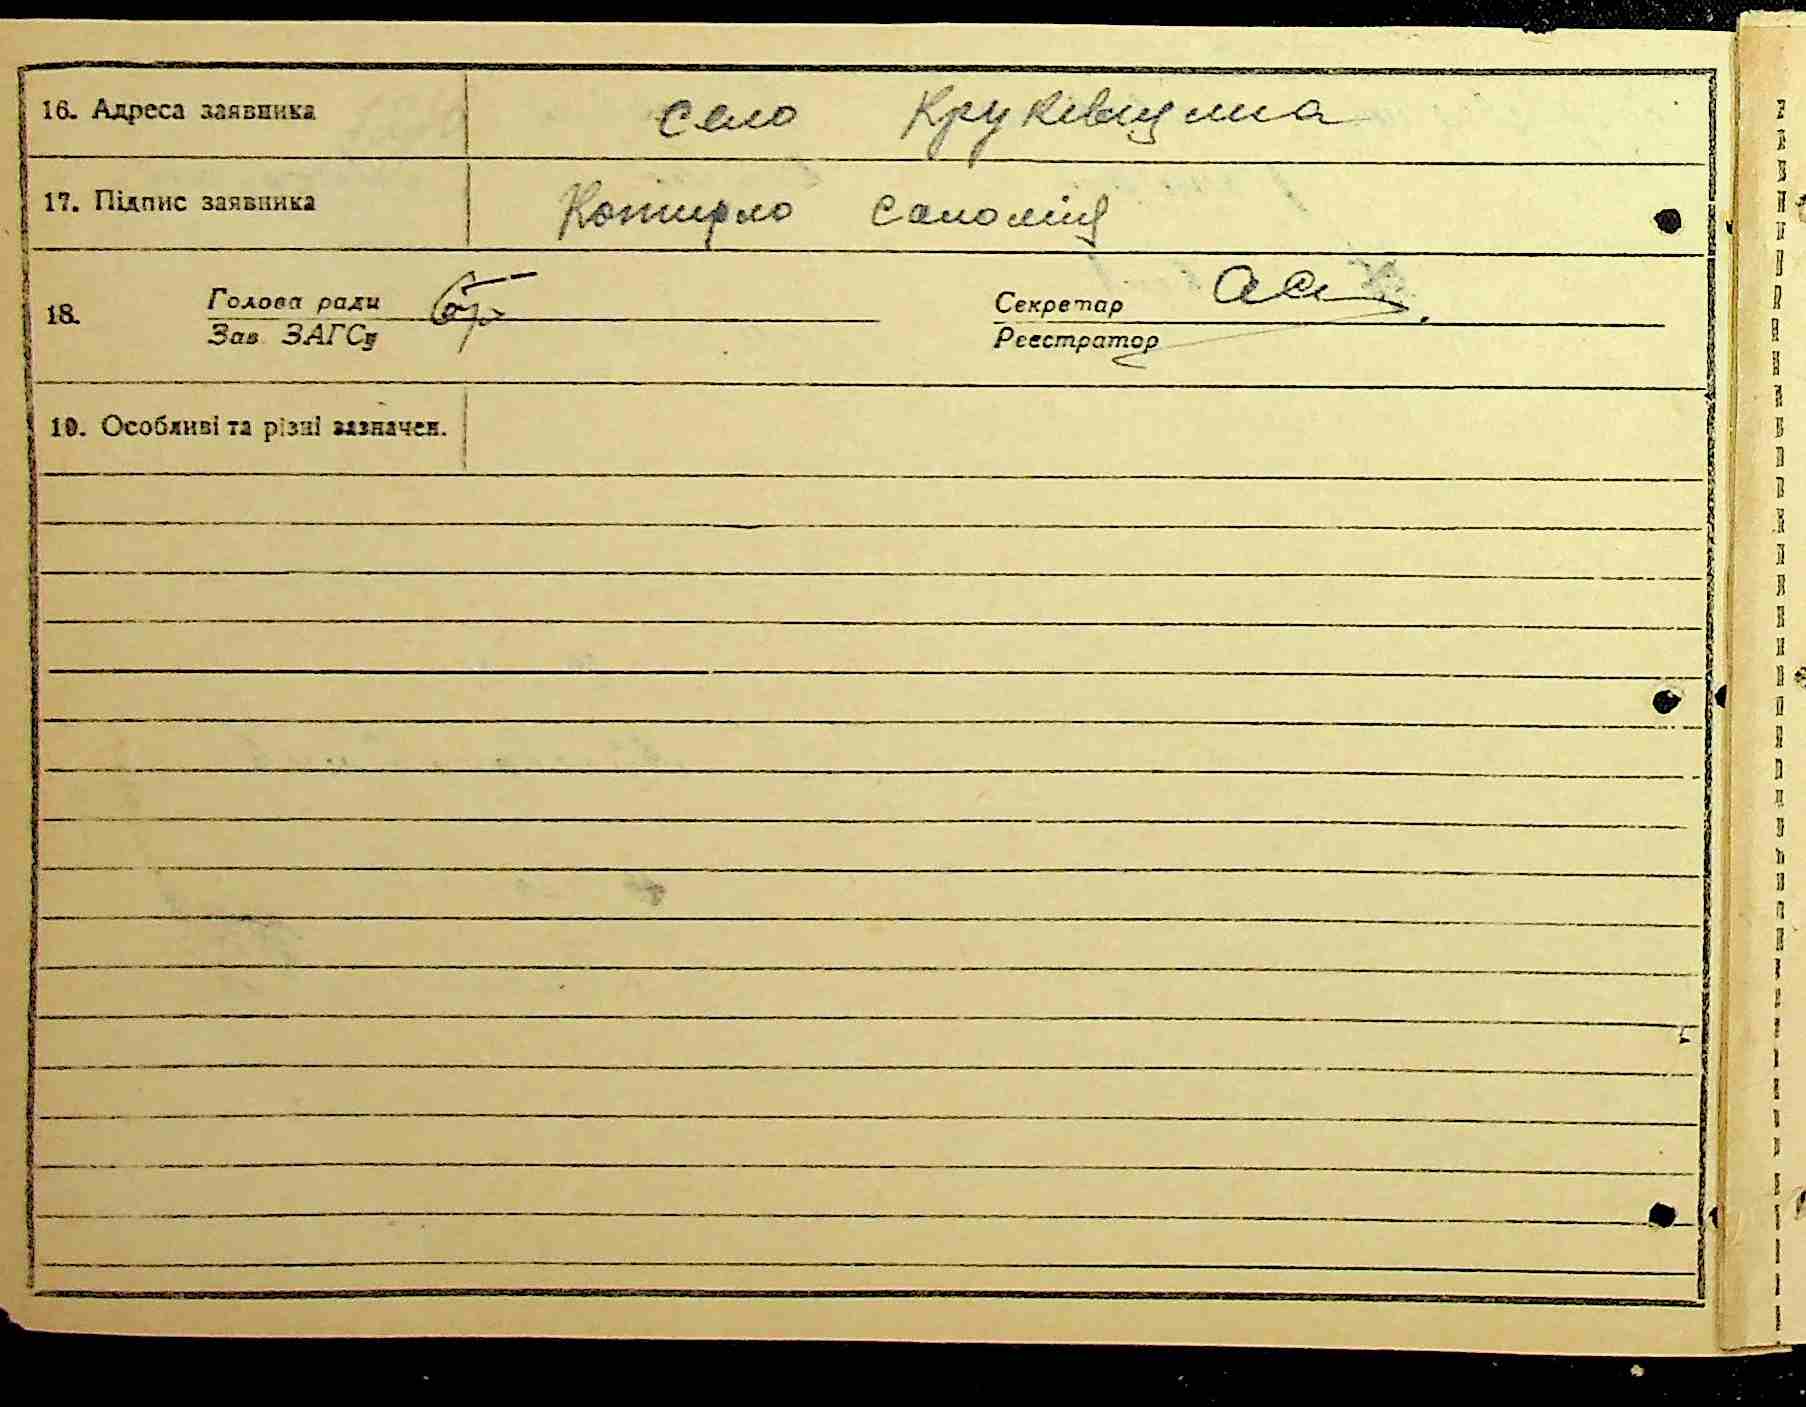 16. Адреса заявника село Круківщина
17. Підпис заявника Котирло Саломія
18. Голова ради Секретар
Зав. ЗАГСу Реєстратор
19. Особливі та різні зазначен.